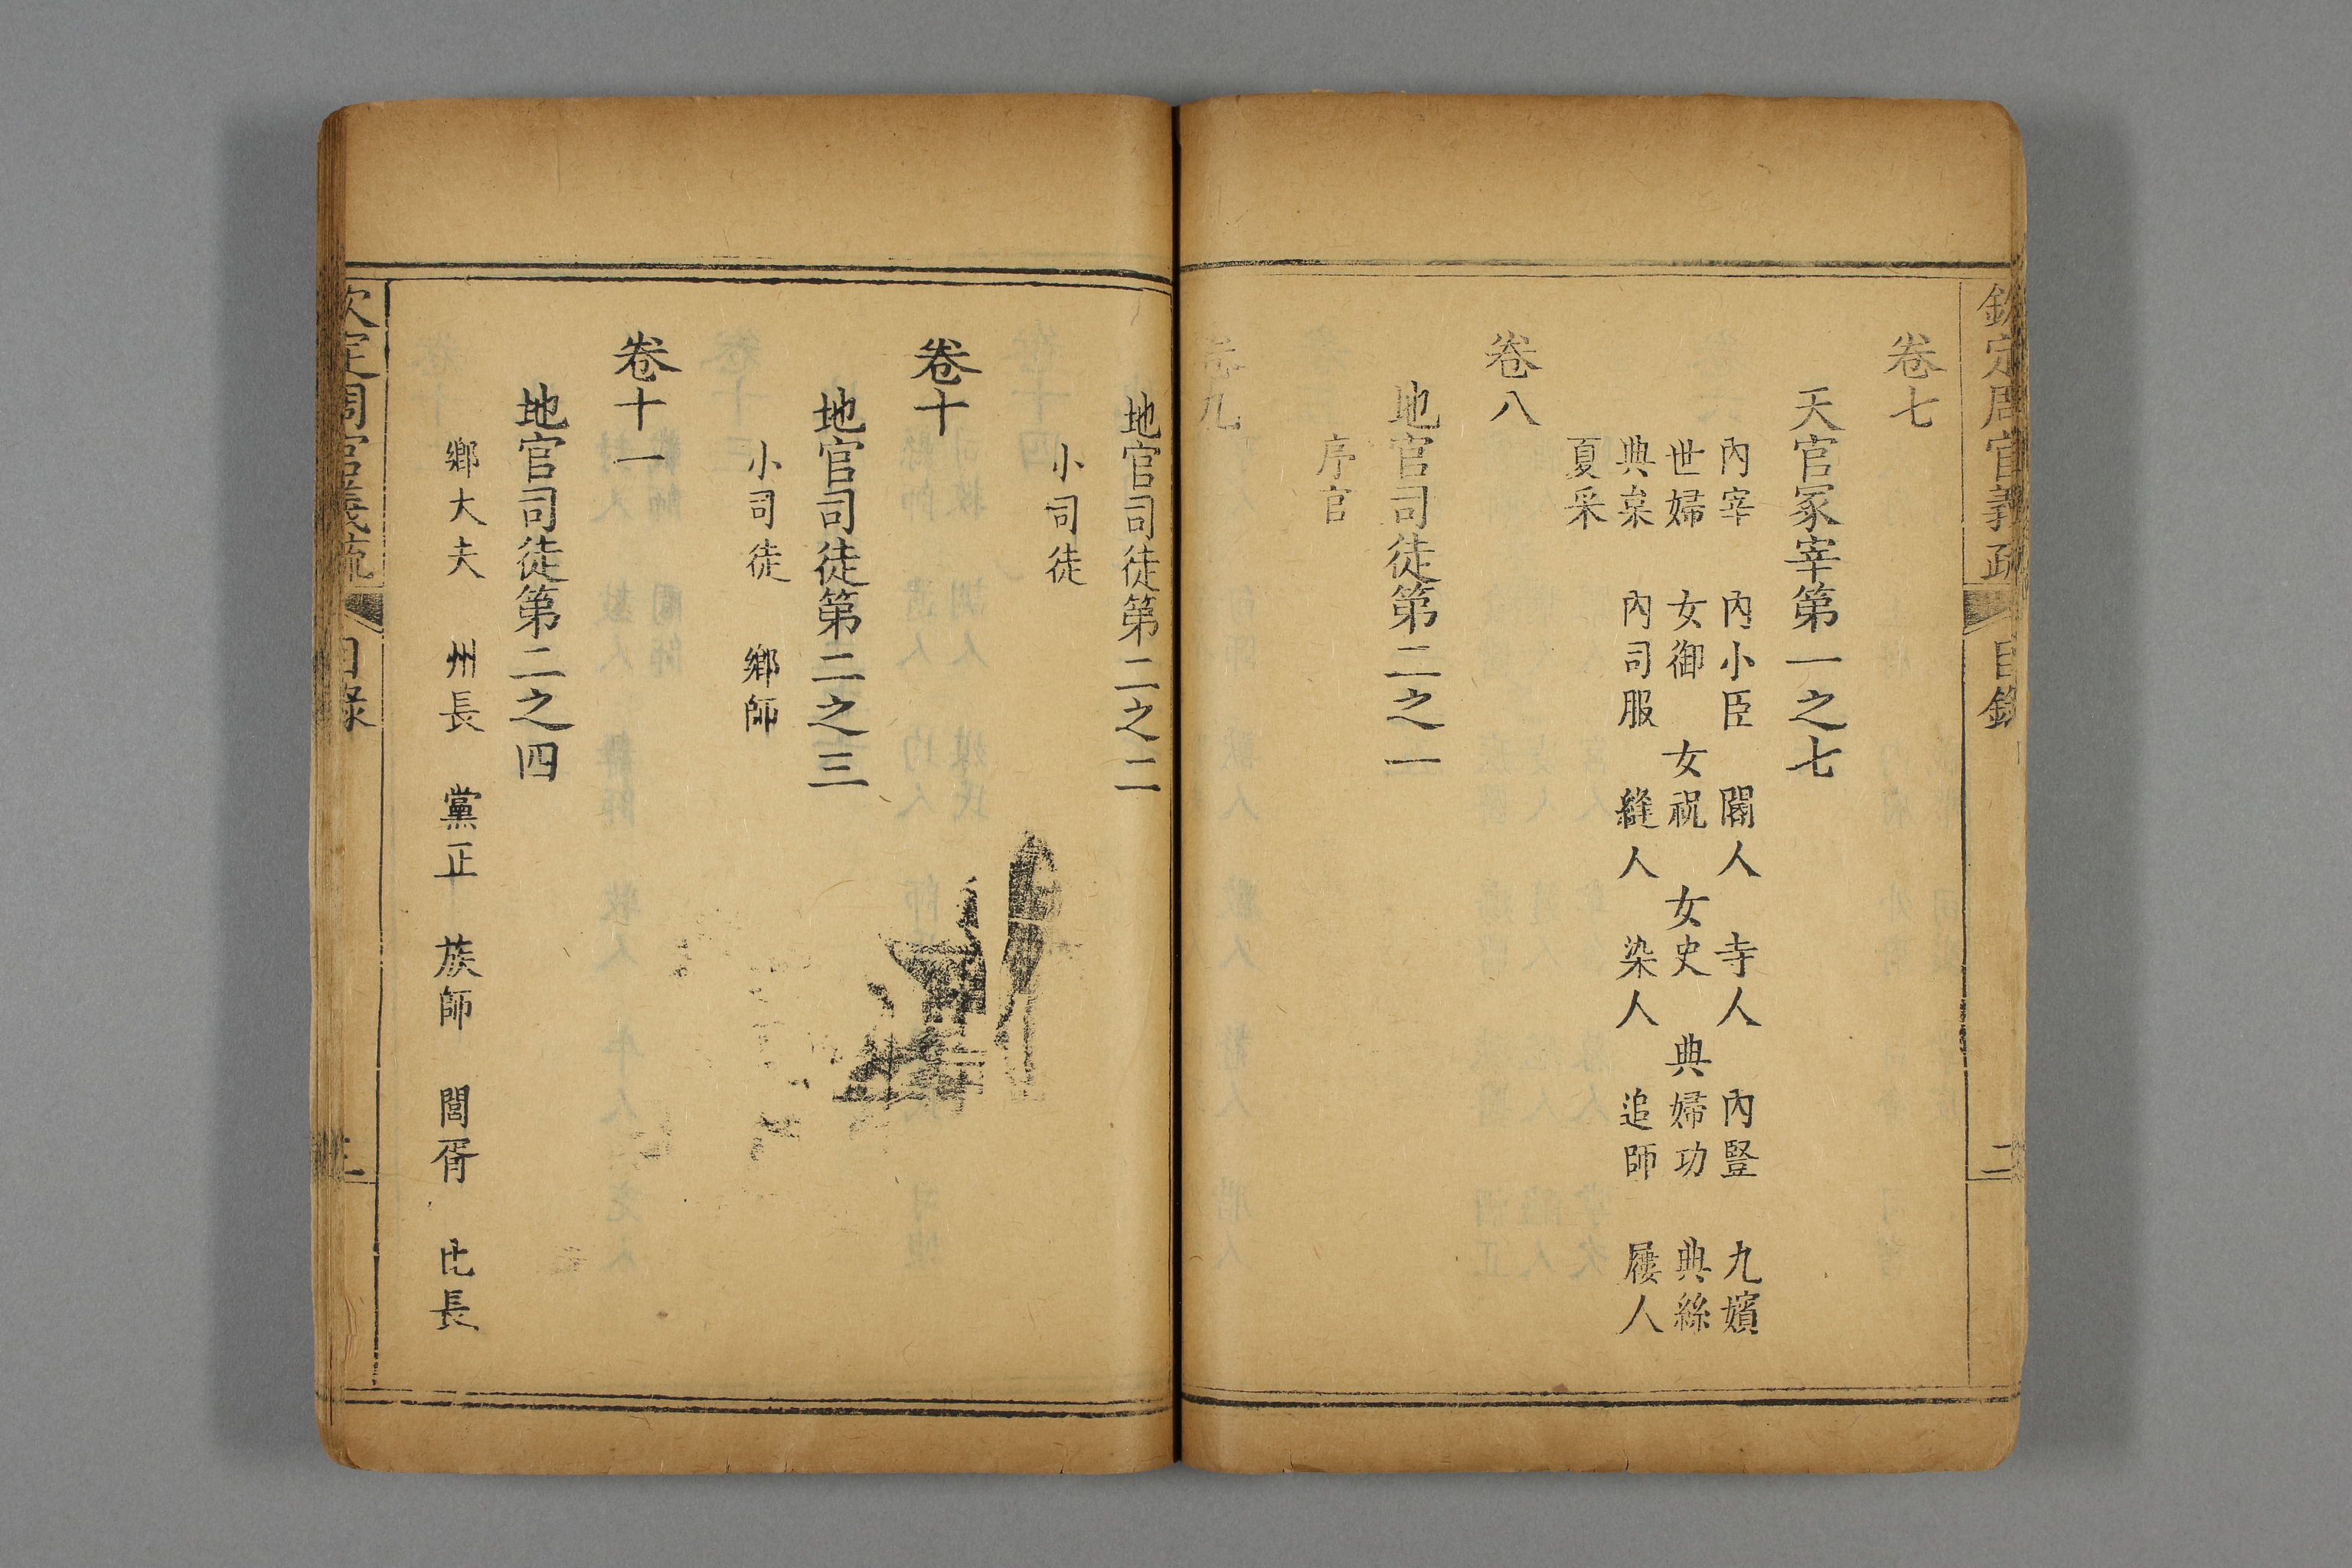 欽定周官義疏 目錄 二
卷七
天官冢宰第一之七
內宰 內小臣 閽人 寺人 內豎 九嬪
世婦 女御 女祝 女史 典婦功 典絲
典枲 內司服 縫人 染人 追師 屨人
夏采
卷八
地官司徒第二之一
序官
卷九
地官司徒第二之二
小司徒
卷十
地官司徒第二之三
小司徒 鄉師
卷十一
地官司徒第二之四
鄉大夫 州長 黨正 族師 閭胥 比長
欽定周官義疏 目錄